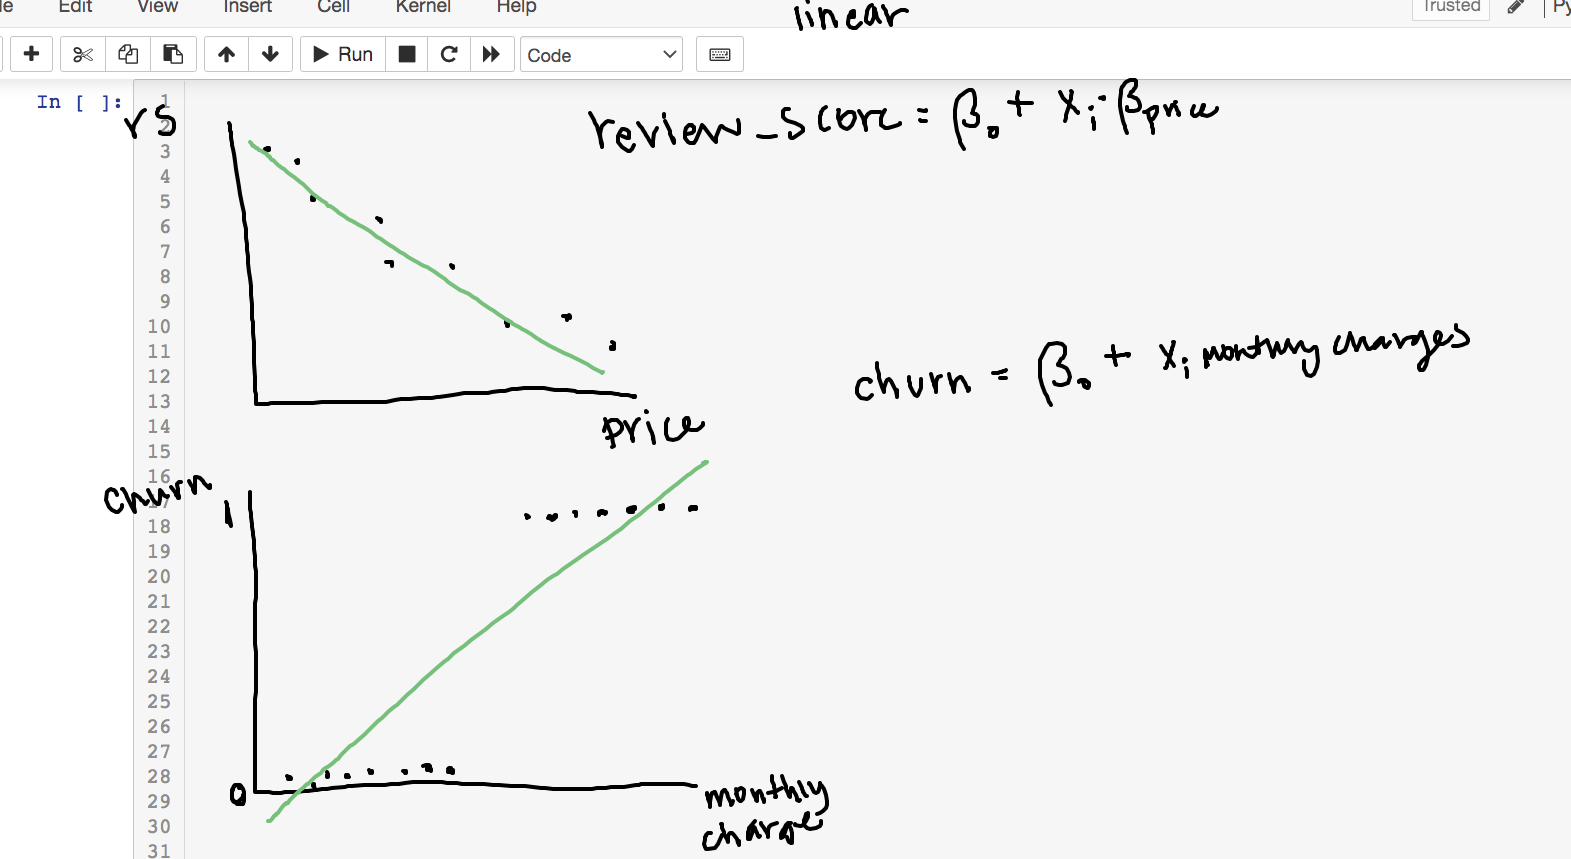 Edit View Insert Cell Kernel Help
linear
Trusted
Run
Code
In [ ]:
1
2
3
4
5
6
7
8
9
10
11
12
13
14
15
16
17
18
19
20
21
22
23
24
25
26
27
28
29
30
31
rs
review_score = β₀ + xᵢ · βprice
price
churn = β₀ + xᵢ monthly charges
churn
1
0
monthly
charge